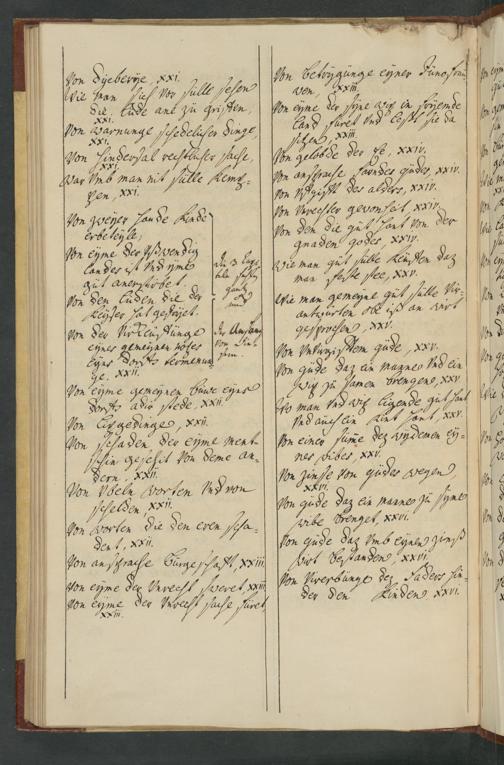 Von Dyeberye, xxi.
Wie man sich vor sulle sehen
die lude ane zu grifen,
xxi.
Von warnunge schedelicher dinge,
xxi.
Von hindersal rechtlicher sache,
xxi.
War umb man nit sulle kemp-
fen, xxi.
Von zweyer hande kinde
erbeteyle,
Von eyme der ußwendig
landes ist und yme
gut anerstorbet,
Von den luden die der
keyser hat gefryet.
Von der
eynes gemeynen
eyns dorffs
ge. xxii.
Von eyme gemeynen buwe eyns
dorffs adir stede, xxii.
Von lipgedinge, xxii.
Von schaden der eyme ment-
schin geschet von deme an-
dern, xxii.
Von ubeln worten und von
schelden, xxii.
Von worten die den eren scha-
dent, xxii.
Von ansprache burgeschafft, xxiii
Von eyme der unrecht sweret, xxiii
Von eyme der unrecht sache füret
xxiii.
Von betrygunge eyner Junfrau-
wen, xxiii.
Von eyme der syne wip in fremde
land furet und leßt sie da
sitzen, xxiii
Von gelobde der Ee, xxiv.
Von ansprache farndes gudes, xxiv.
Von des alders, xxiv.
Von unrechter gewonheit, xxiv.
Von den die gut hant von der
gnaden godes, xxiv.
Wie man gut sulle kunden daz
man feste stee, xxv.
Wie man gemeyne gut sulle ver-
antwurten obe ist an wirt
gesprochen, xxv.
Von gude, xxv.
Von gude daz ein manne und ein
wip zu samen brengent, xxv
So man und wip ligende gut hant
und auch ein kint hant, xxv.
Von einer sume dez wydemen ey-
nes wibes, xxv.
Von zinse von gudes wegen,
xxvi.
Von gude daz ein manne zu syme
wibe brenget, xxvi.
Von gude daz umb eynen zinß
wirt bestanden, xxvi
Von dez faders hin-
der den kinden, xxvi.